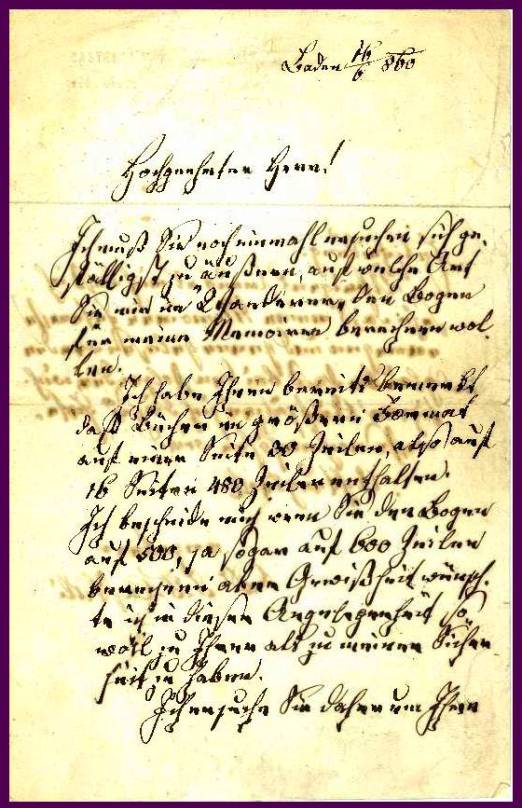 Baden 16/6 860
Hochgeehrter Herr!
Ich muß Sie noch einmahl ersuchen sich ge-
fälligst zu äußern, auf welche Art
Sie mir im Wanderer den Bogen
für meine Memoiren berechnen wol-
len.
Ich habe Ihnen bereits bemerkt
daß Bücher in größern Format
auf einer Seite 30 Zeilen, also auf
16 Seiten 480 Zeilen enthalten.
Ich bescheide mich wenn Sie den Bogen
auf 500, ja sogar auf 600 Zeilen
berechnen aber Gewißheit wünsch-
te ich in dieser Angelegenheit so
wohl zu Ihrer als zu meiner Sicher
heit zu haben.
Ich ersuche Sie daher um Ihre